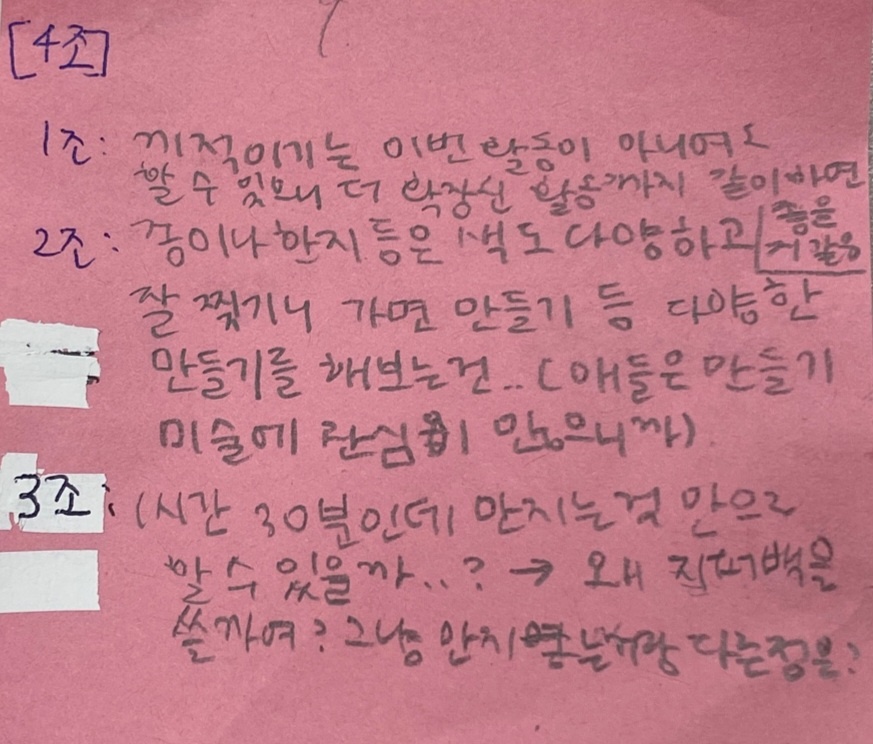 [4조]
1조: 끼적이기는 이번 활동이 아니여도
할 수 있으니 더 확장된 활동까지 같이하면
좋을
거 같음
2조: 종이나 한지 등은 색도 다양하고
잘 찢기니 가면 만들기 등 다양한
만들기를 해보는건..(애들은 만들기
미술에 관심이 많으니까)
3조: (시간 30분인데 만지는것 만으로
할 수 있을까..? → 왜 지퍼백을
쓸까여? 그냥 만지는거랑 다른점은?